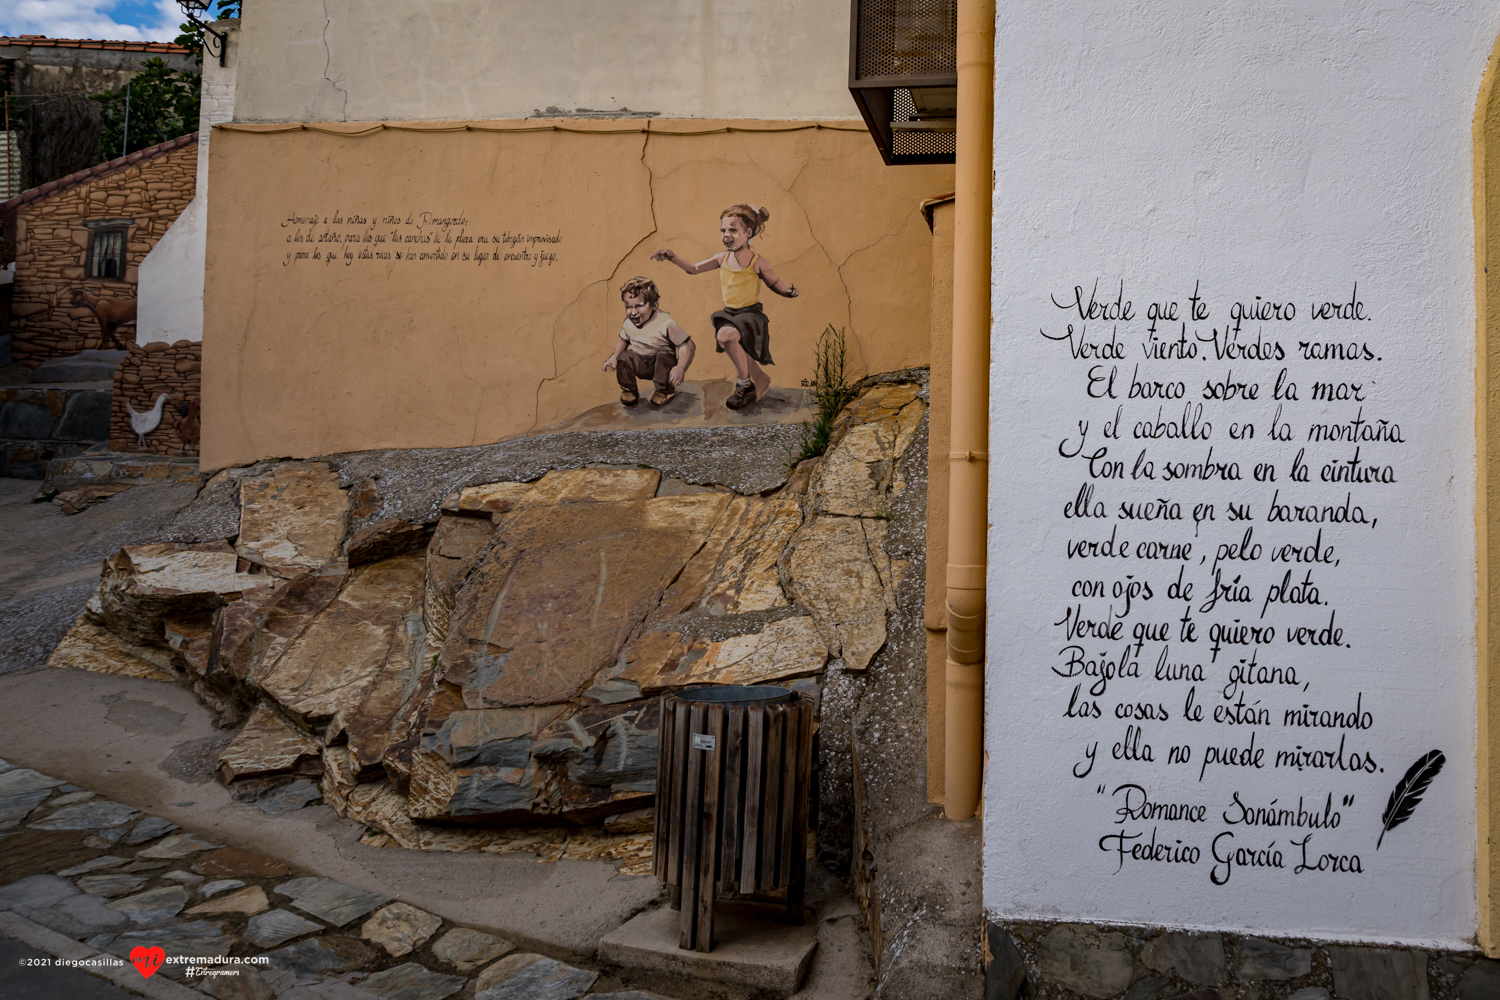 Homenaje a las niñas y niños de Romangordo;
a los de antaño, para los que "las canchas" de la plaza era su tobogán improvisado
y para los que hoy estas rocas se han convertido en su lugar de encuentro y juego.
Verde que te quiero verde.
Verde viento. Verdes ramas.
El barco sobre la mar
y el caballo en la montaña
Con la sombra en la cintura
ella sueña en su baranda,
verde carne, pelo verde,
con ojos de fría plata.
Verde que te quiero verde.
Bajola luna gitana,
las cosas le están mirando
y ella no puede mirarlas.
"Romance Sonámbulo"
Federico García Lorca
©2021 diegocasillas mi extremadura.com
#Extregramers